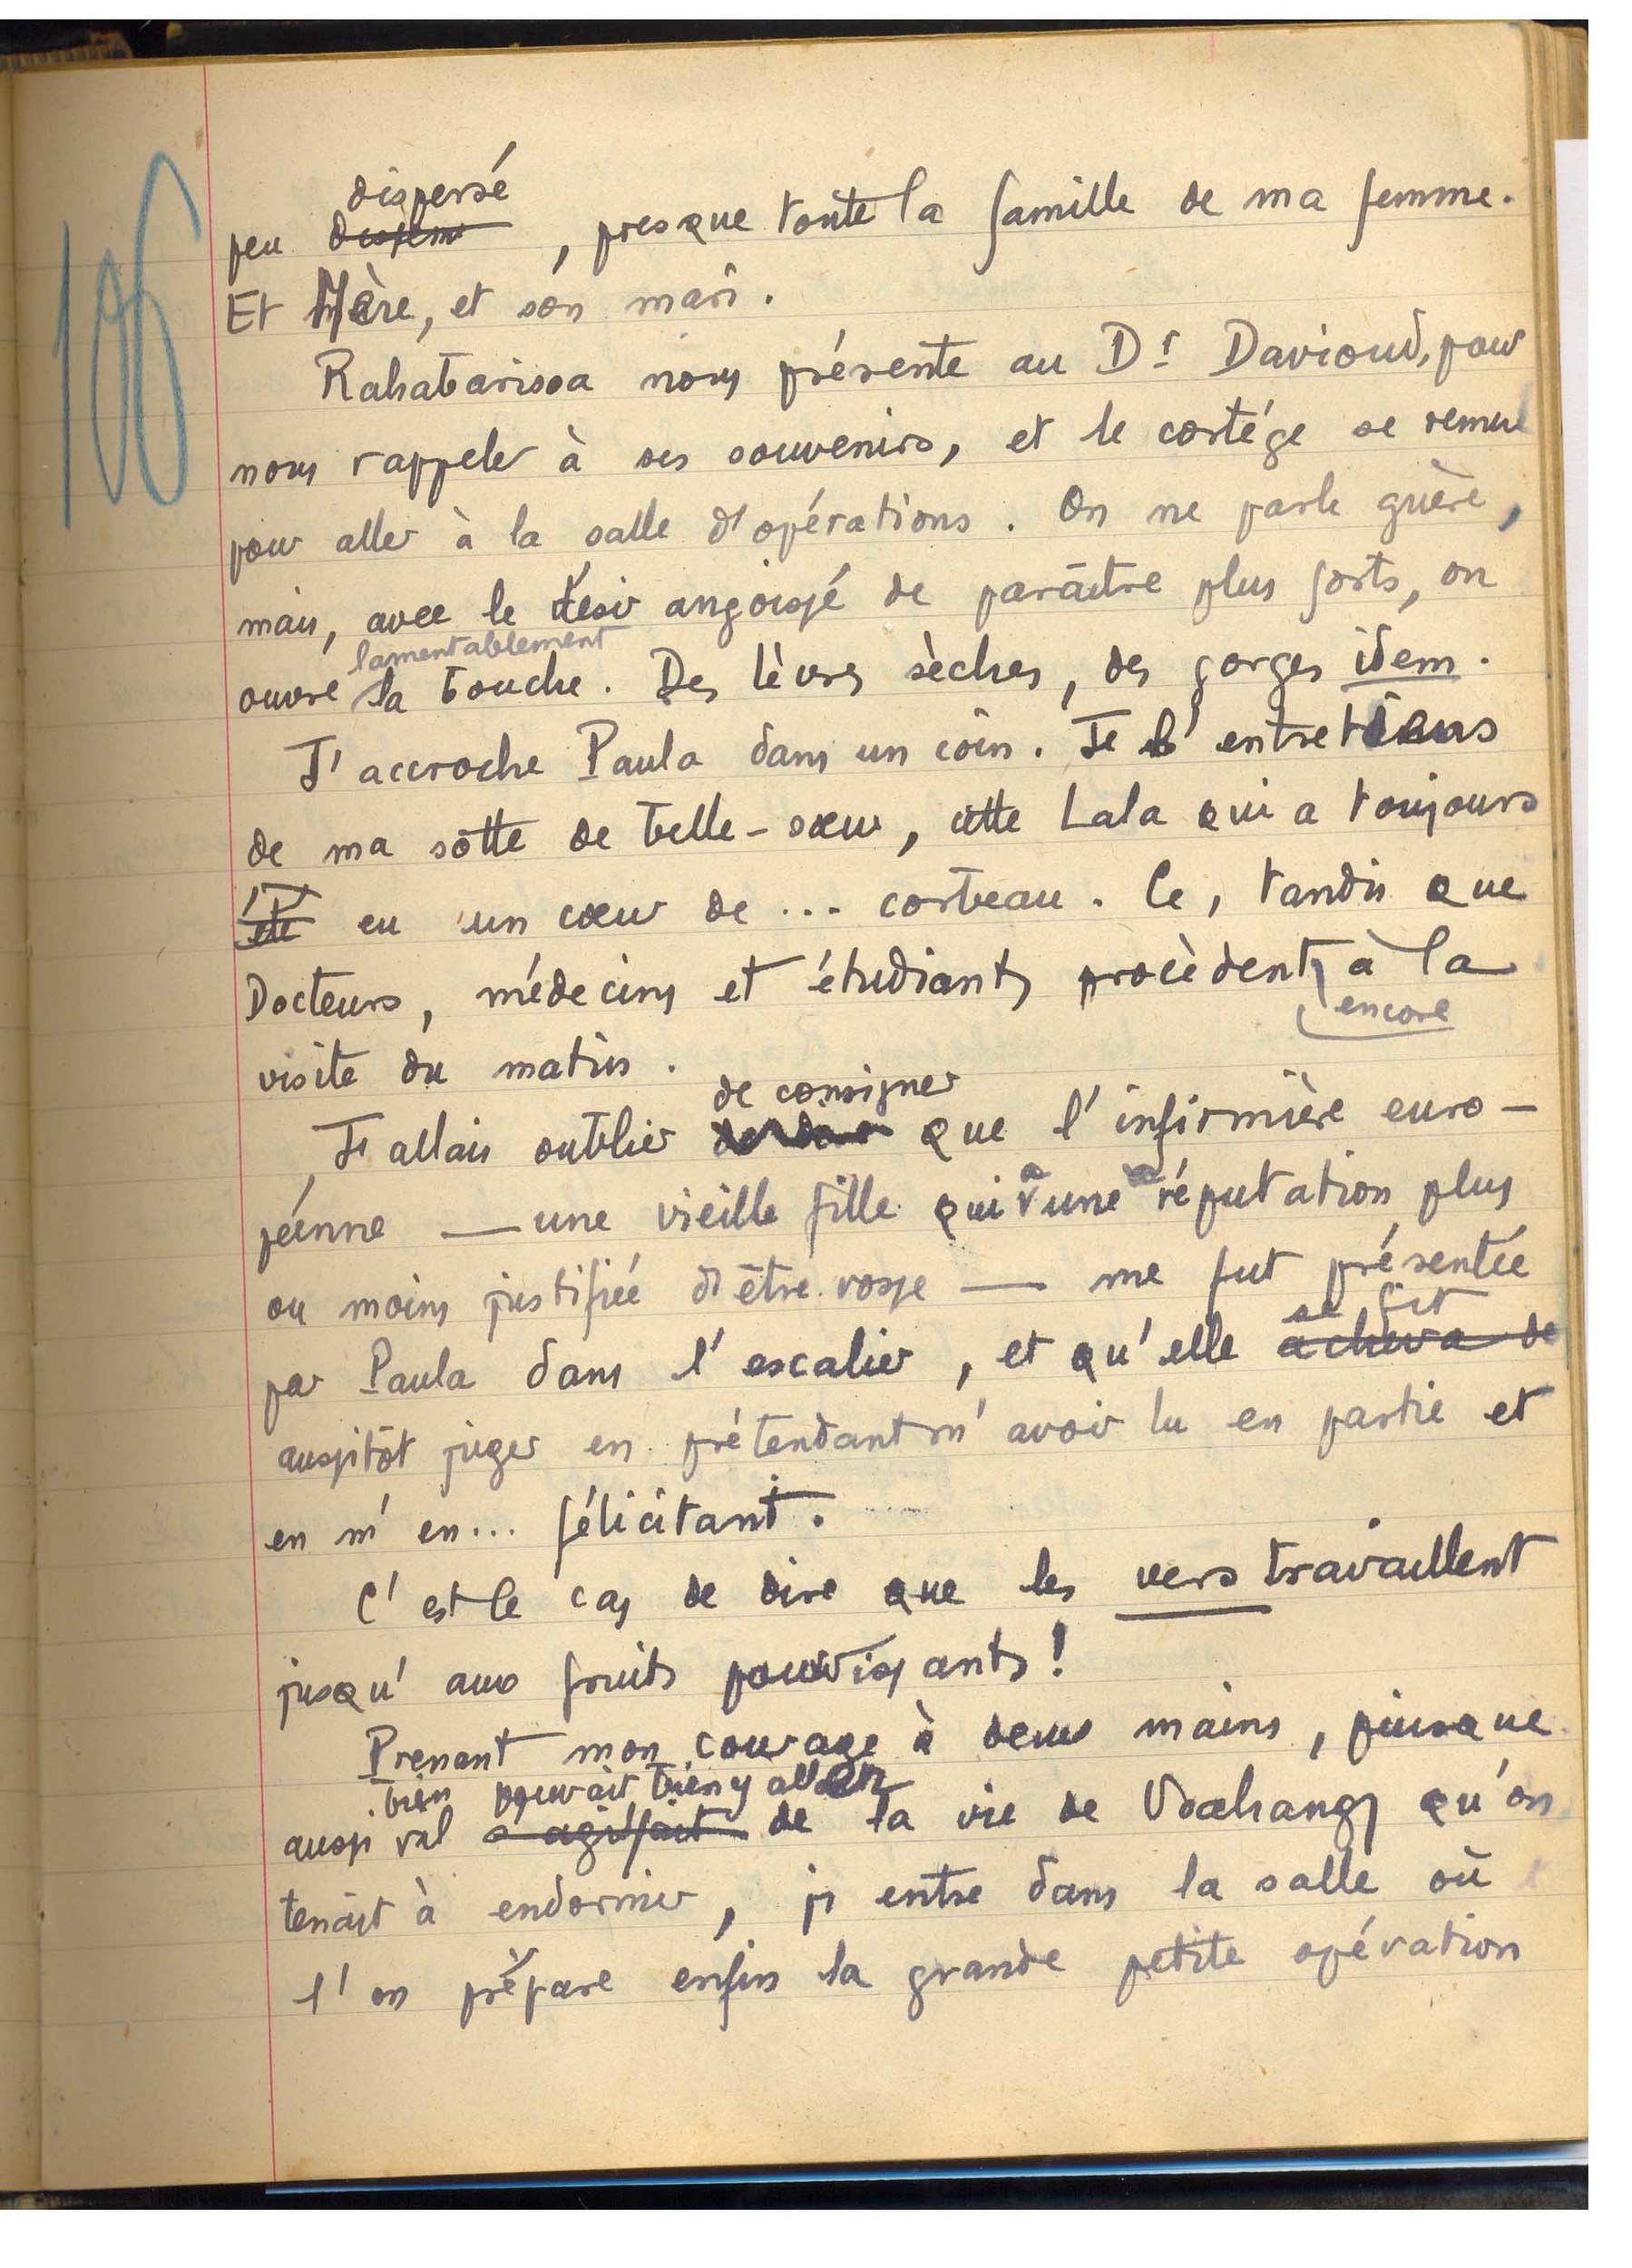 106
dispersé
peu , presque toute la famille de ma femme.
Et Mère, et son mari.
Rahatarissa nous présente au Dr Davioud, pour
nous rappeler à ses souvenirs, et le cortége se remue
pour aller à la salle d'opérations. On ne parle guère,
mais, avec le désir angoissé de paraître plus forts, on
lamentablement
ouvre la bouche. Des lèvres sèches, des gorges idem.
J'accroche Paula dans un coin. Je l'entretiens
de ma sotte de belle-sœur, cette Lala qui a toujours
été eu un cœur de... corbeau. Ce, tandis que
Docteurs, médecins et étudiants procèdent à la
encore
visite du matin.
de consigner
J'allais oublier que l'infirmière euro-
péenne — une vieille fille qui a une réputation plus
ou moins justifiée d'être rosse — me fut présentée
se fit
par Paula dans l'escalier, et qu'elle acheva de
aussitôt juger en prétendant m'avoir lu en partie et
en m'en... félicitant.
C'est le cas de dire que les vers travaillent
jusqu'aux fruits pourrissants!
Prenant mon courage à deux mains, puisque
bien pouvait bien y aller
aussi s'agissait de la vie de qu'on
tenait à endormir, j'entre dans la salle où
l'on prépare enfin la grande petite opération